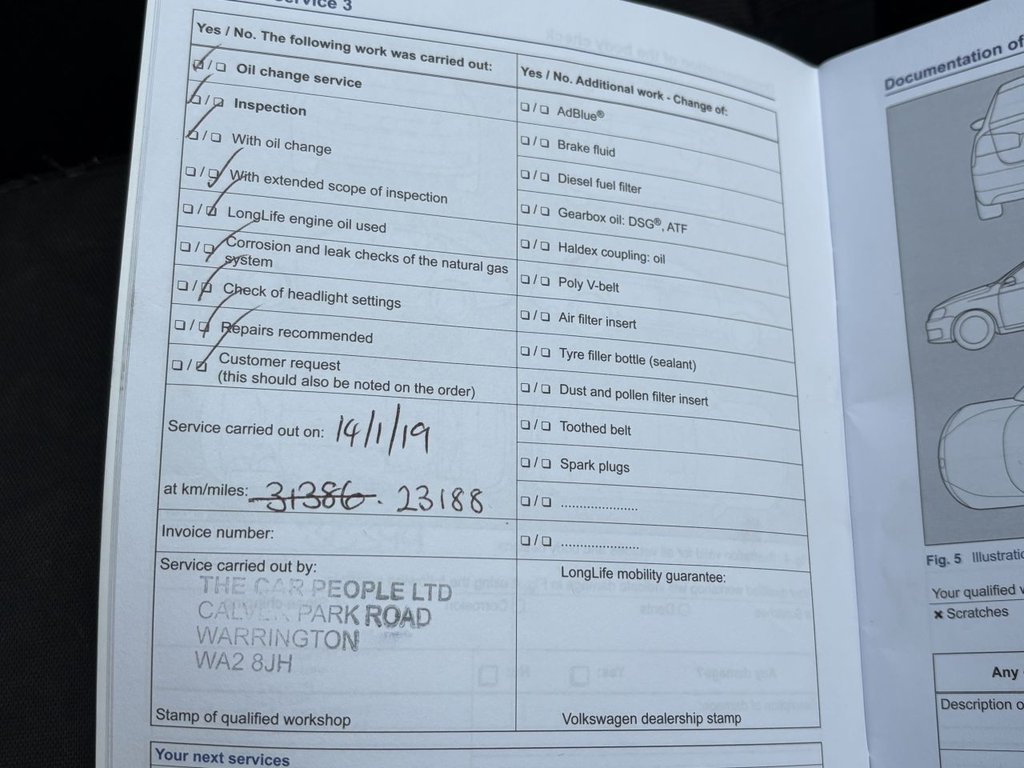 Service 3
Yes / No. The following work was carried out:
Oil change service
Inspection
With oil change
With extended scope of inspection
LongLife engine oil used
Corrosion and leak checks of the natural gas
system
Check of headlight settings
Repairs recommended
Customer request
(this should also be noted on the order)
Service carried out on: 14/1/19
at km/miles: 31386. 23188
Invoice number:
Service carried out by:
THE CAR PEOPLE LTD
CALVER PARK ROAD
WARRINGTON
WA2 8JH
Stamp of qualified workshop
Your next services
Yes / No. Additional work - Change of:
AdBlue®
Brake fluid
Diesel fuel filter
Gearbox oil: DSG®, ATF
Haldex coupling: oil
Poly V-belt
Air filter insert
Tyre filler bottle (sealant)
Dust and pollen filter insert
Toothed belt
Spark plugs
LongLife mobility guarantee:
Volkswagen dealership stamp
Documentation of
Fig. 5 Illustratio
Your qualified w
× Scratches
Any
Description o